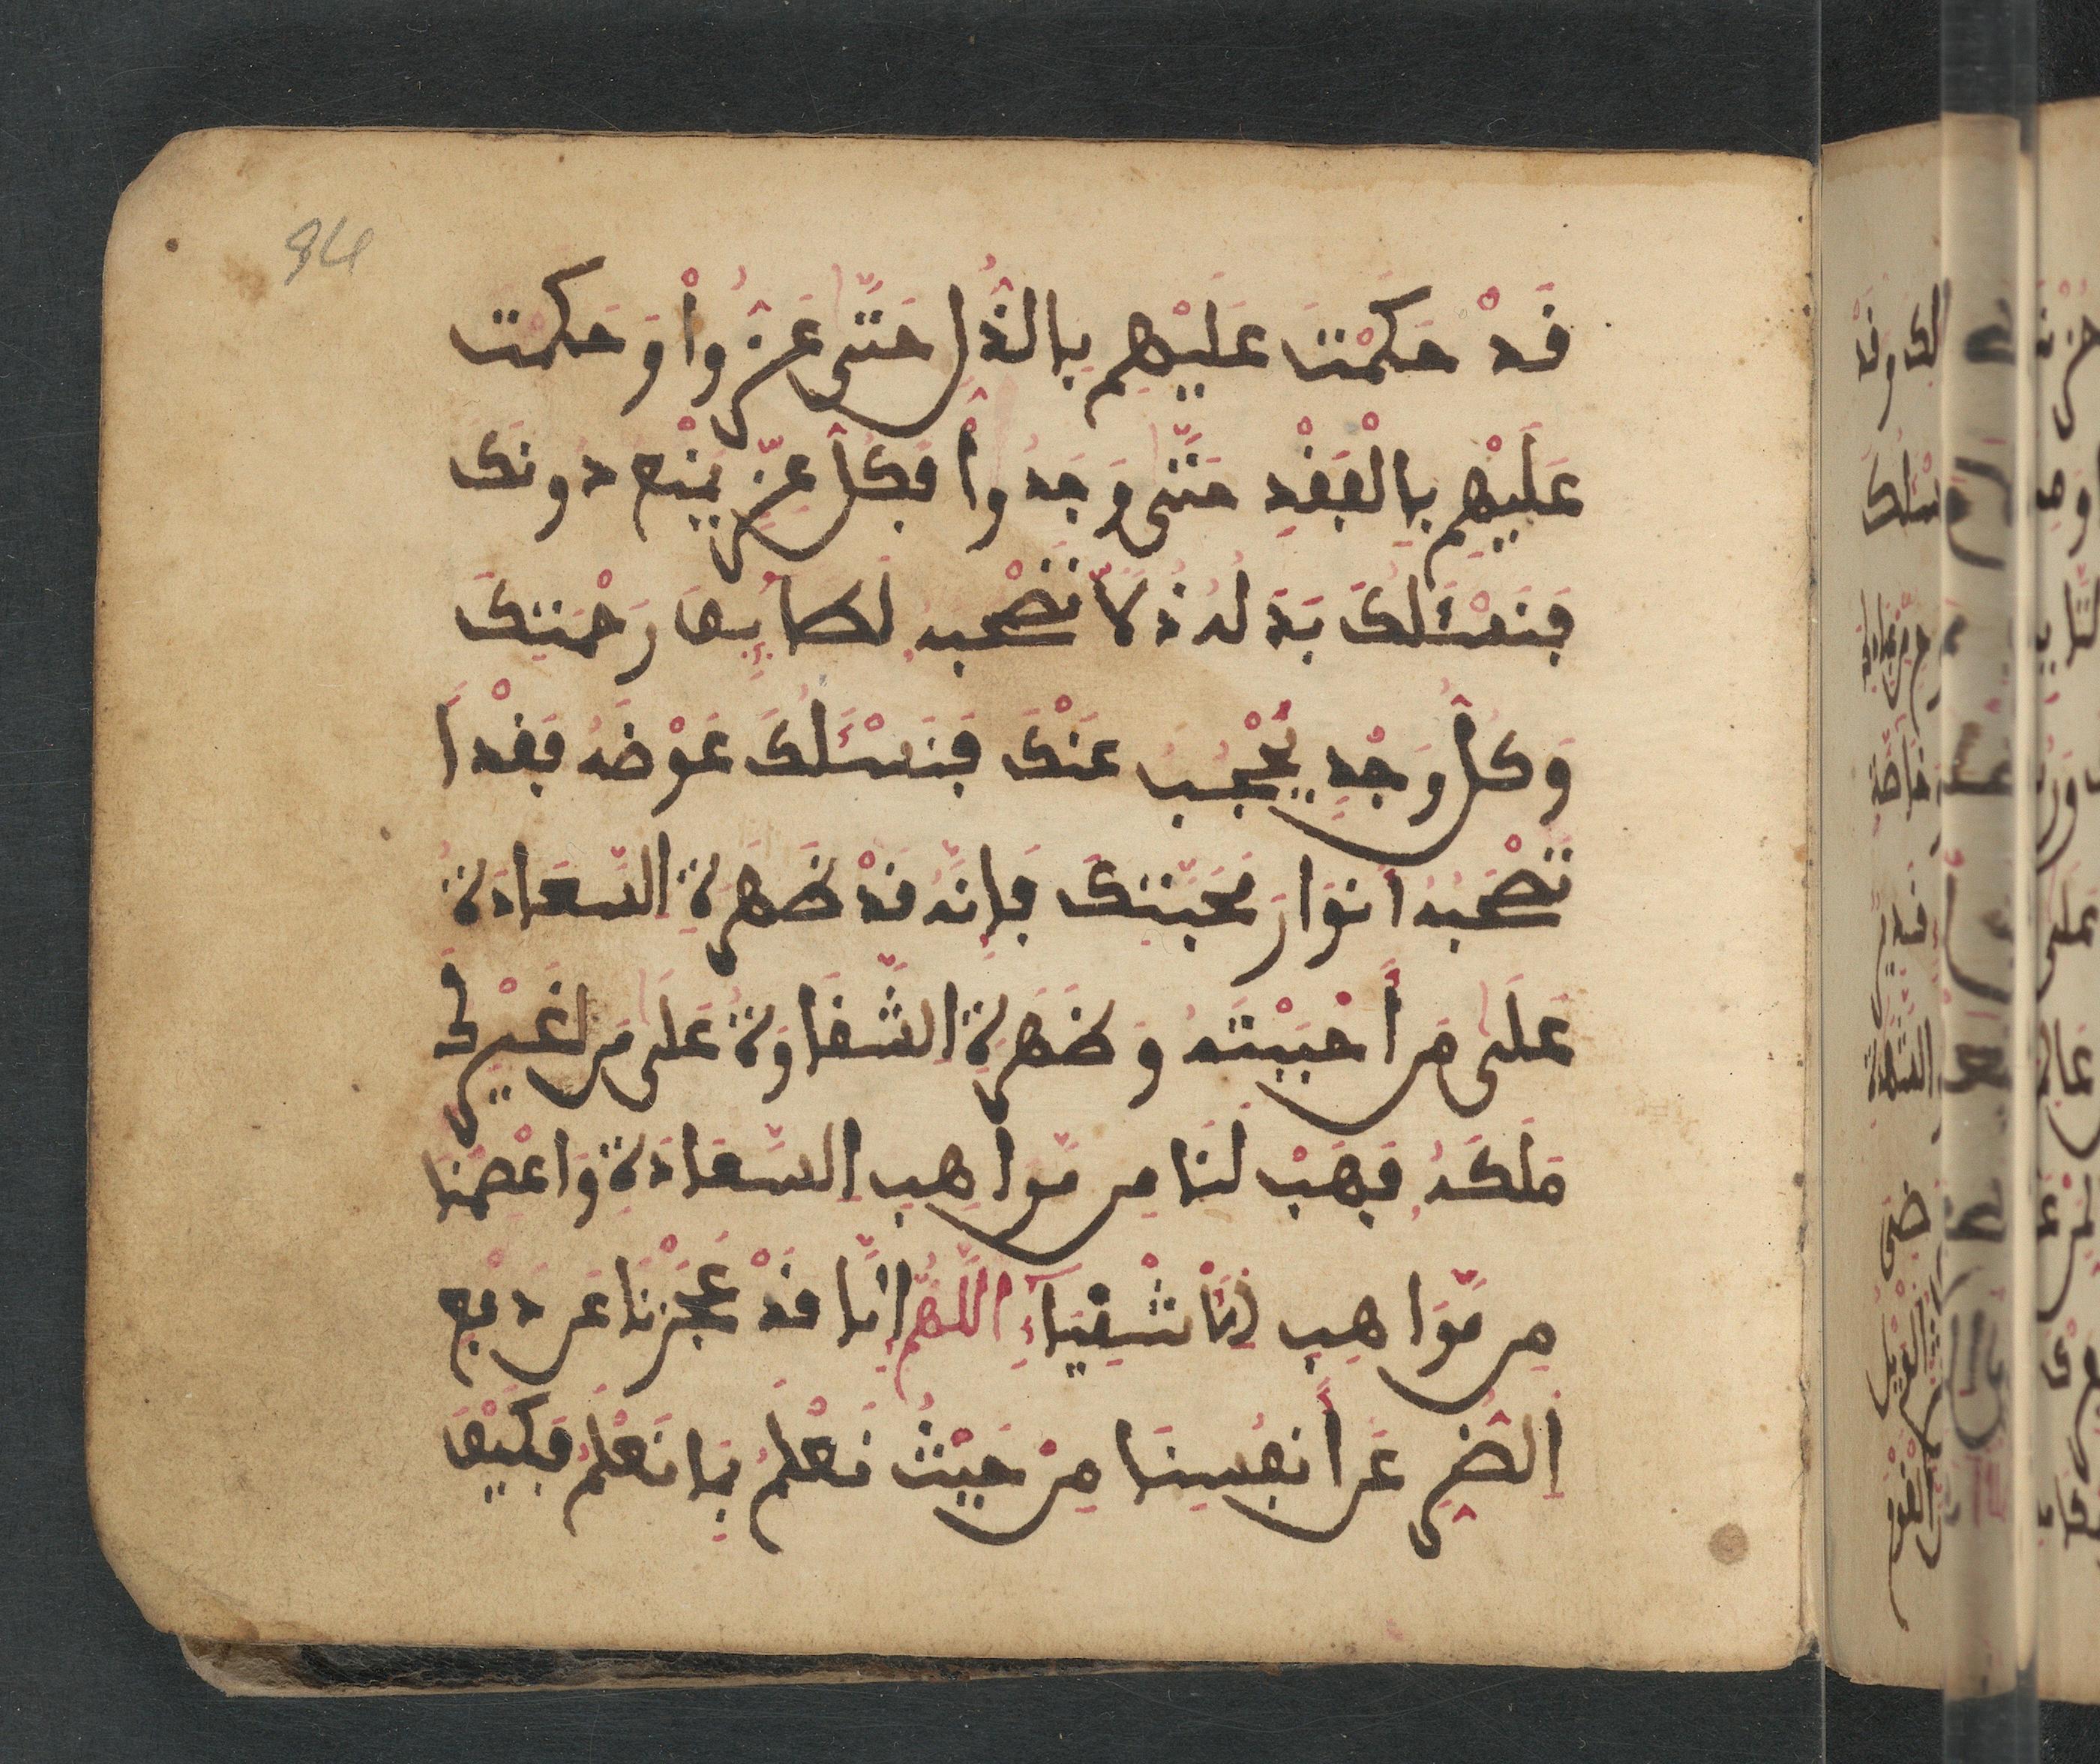 94
قَدْ حَكَمْتَ عَلَيْهِم بِالذُّلِ حَتَّى عَزُّواْ وَحَكَمْتَ
عَلَيْهِم بِالْفَقْدِ حَتَّى وَجَدُواْ فَكُلُّ عِزٍّ يَمْنَع دُونَكَ
فَنَسْئَلُكَ بَدَلَهُ ذُلاًّ تَصْحَبُهُ لَطَائِفُ رَحْمَتِكَ
وَكُلُّ وَجْدٍ يَحْجُبُ عَنْكَ فَنَسْئَلُكَ عَوْضَهُ فَقْداً
تَصْحَبُهُ أَنْوَارُ مَحَبَّتِكَ فَإِنَّهُ قَدْ ظَهَرَةِ السَّعَادَةُ
عَلَى مَن أَحْبَبْتَهُ وَظَهَرَةِ الشَّقَاوَةُ عَلَى مَن لغَيْرُكَ
مَلَكَهُ فَهَبْ لَنَا مِن مَّوَاهِبِ السَّعَادَةِ وَاعْصِمْنَا
مِن مَّوَاهِبِ الْأَشْقِيَاءِ اللَّهُمَّ إِنَّا قَدْ عَجَزْنَا عَن دَفْعِ
الضُّرِّ عَن أَنفُسِنَا مِنْ حَيْثُ نَعْلَمُ بِمَا نَعْلَمُ فَكَيْفَ